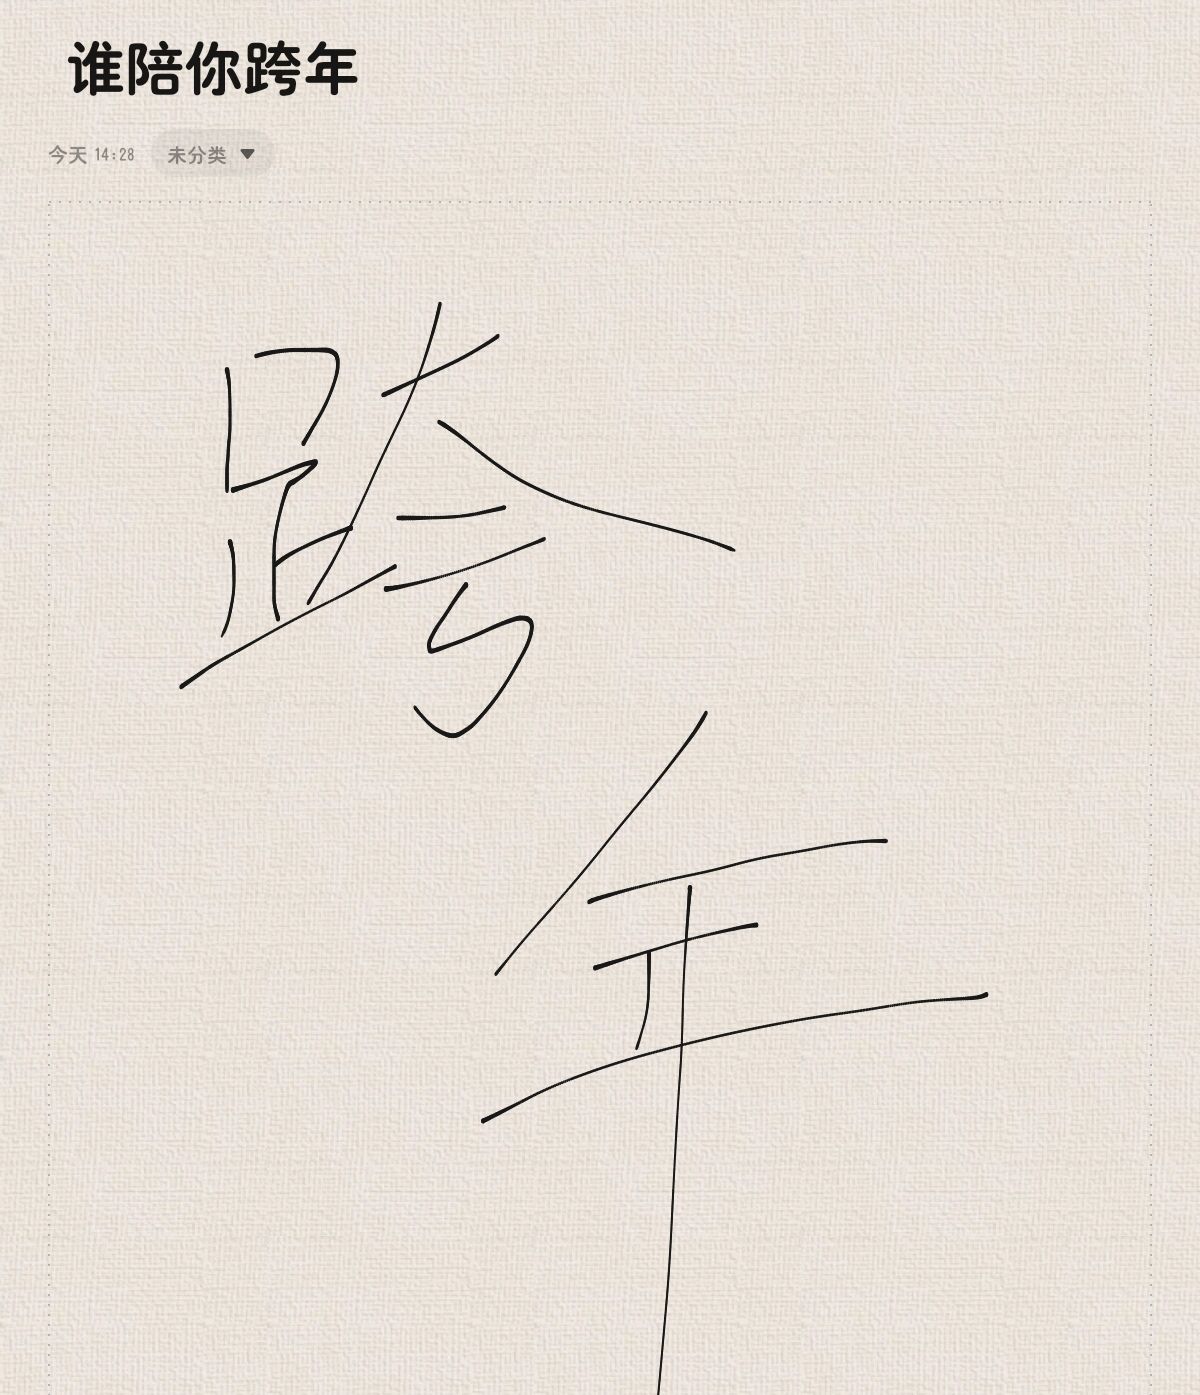 谁陪你跨年
今天 14:28 未分类
跨
年